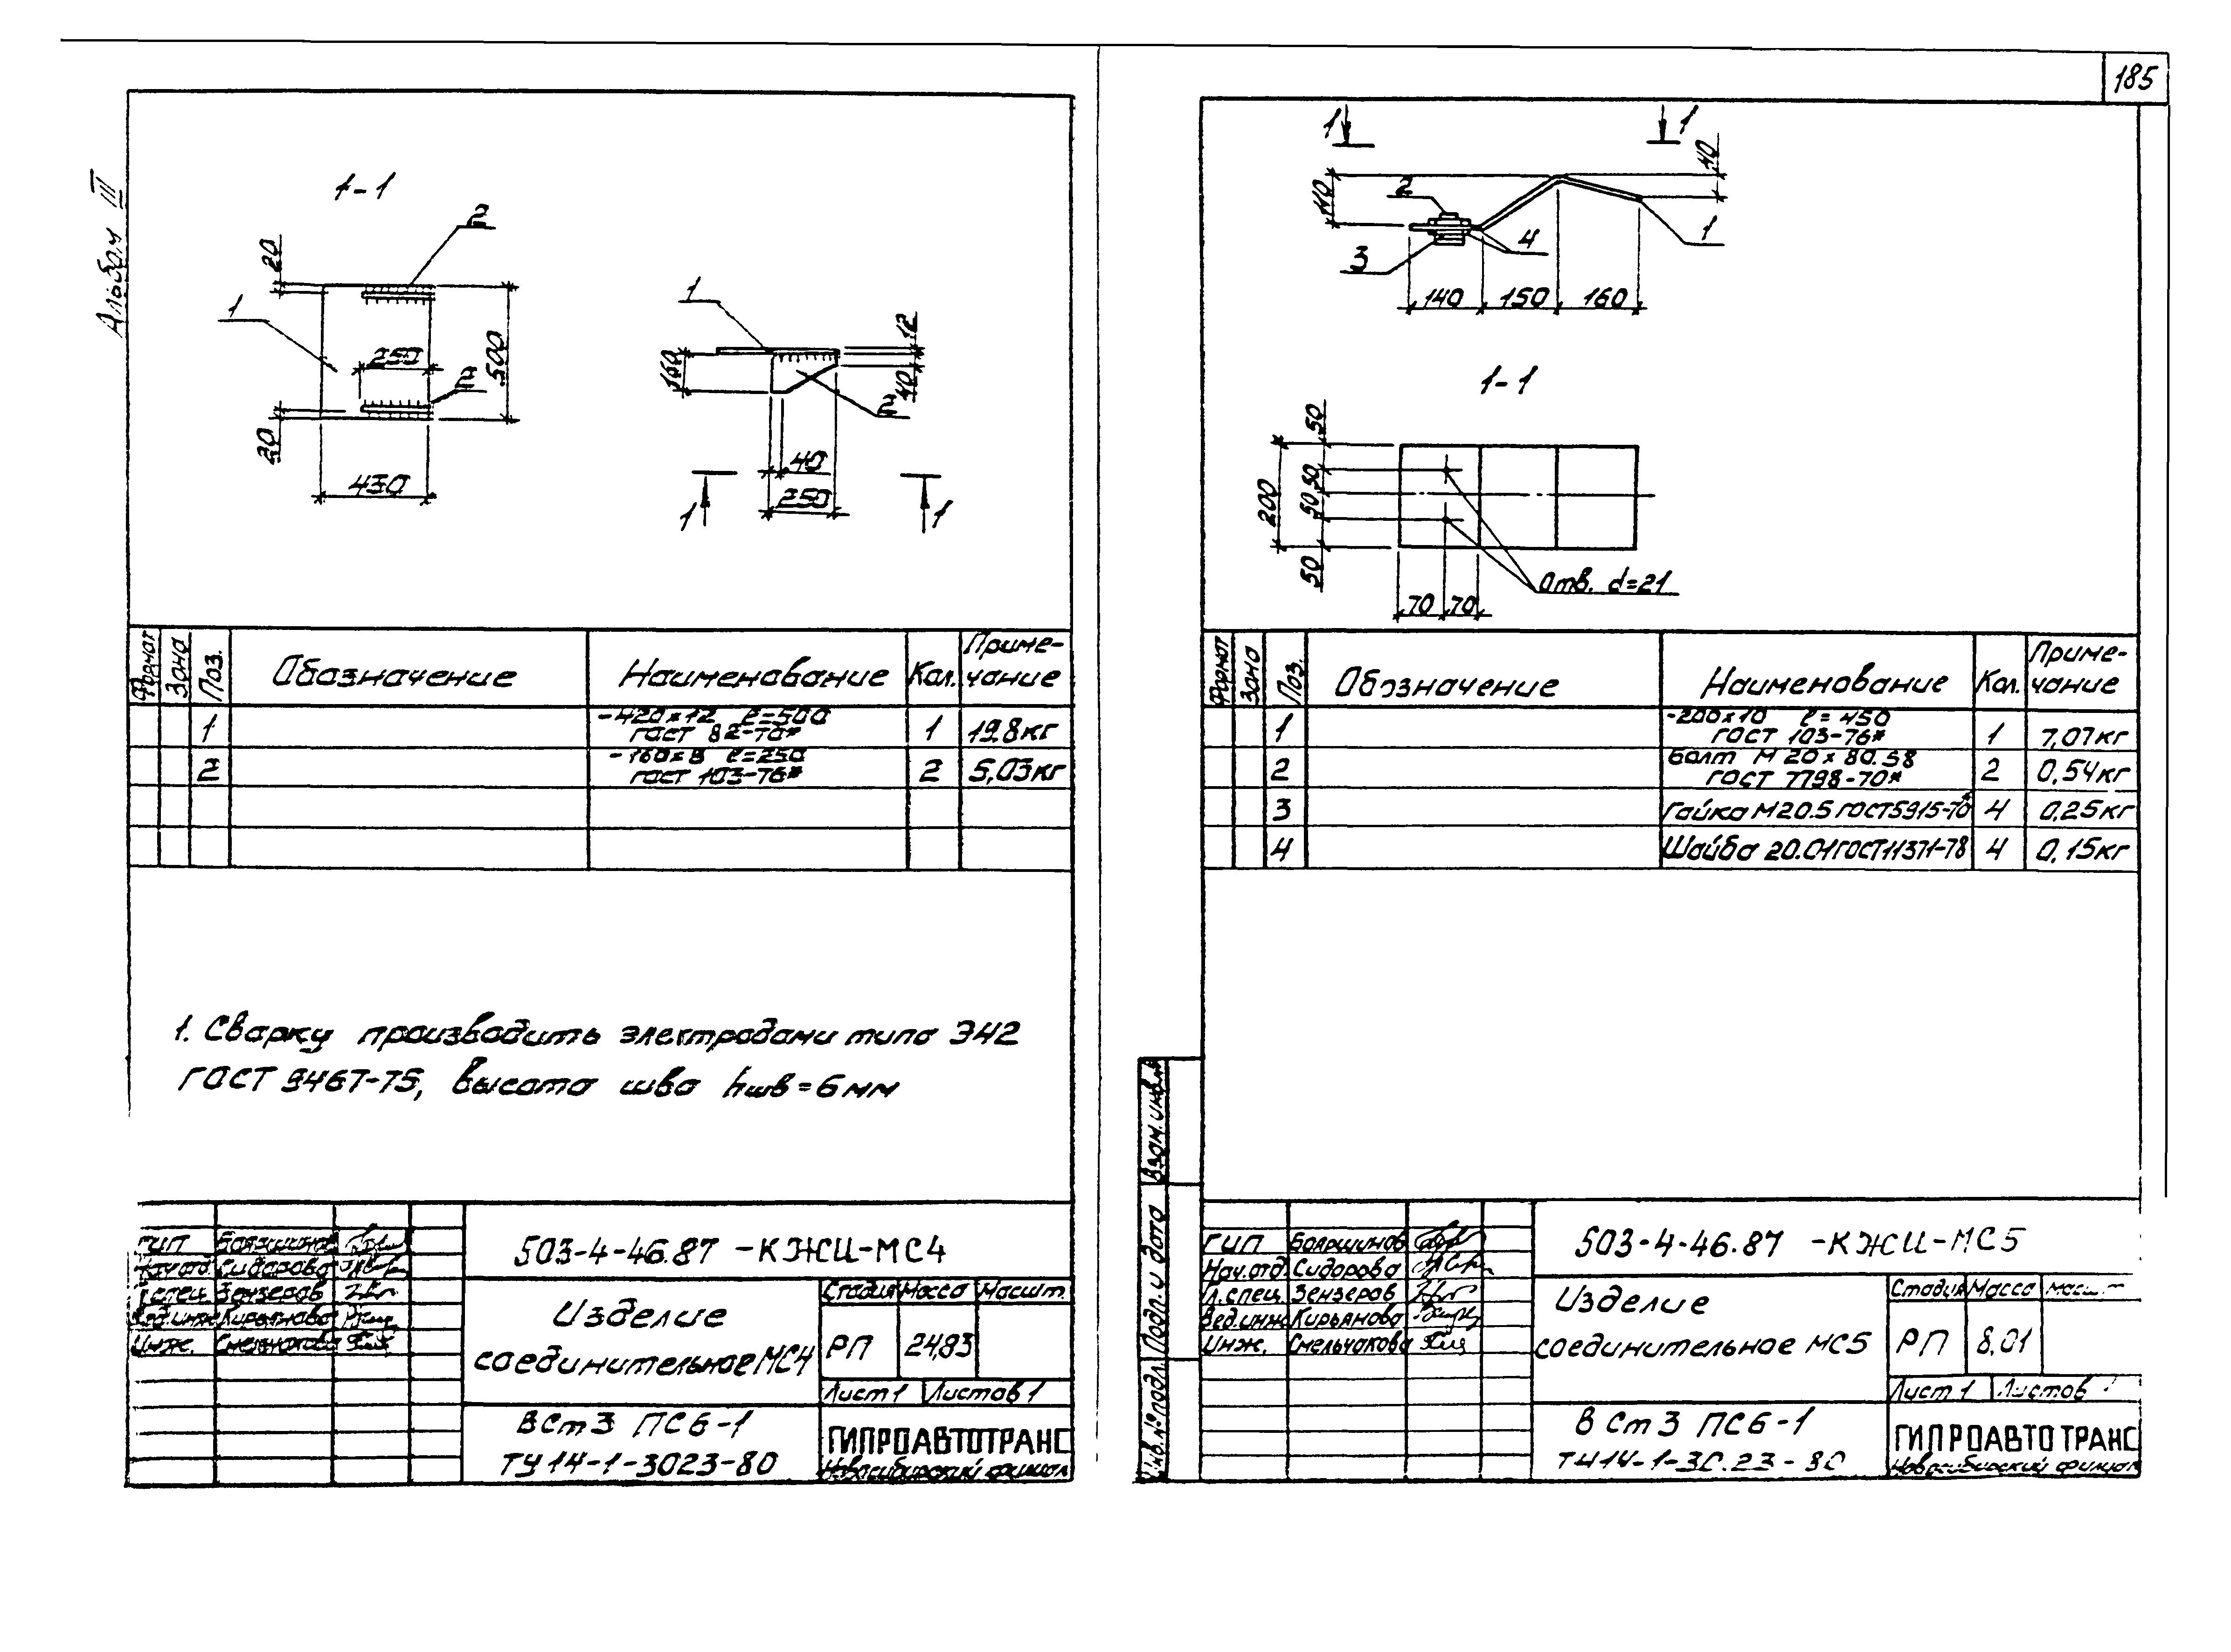 185
Альбом III
1-1
2
20
1
250
500
2
20
430
1
160
12
40
2
40
250
1
1
Формат
Зона
Поз.
Обозначение
Наименование
Кол.
Приме-
чание
1
-420×12 ℓ=500
ГОСТ 82-70*
1
19.8кг
2
-160×8 ℓ=250
ГОСТ 103-76*
2
5,03кг
1. Сварку производить электродами типа Э42
ГОСТ 9467-75, высота шва hшв=6мм
ГИП Бояршинов
Нач.отд. Сидорова
Гл.спец. Зензеров
Вед.инж Кирьянова
Инж. Смельчакова
503-4-46.87 -КЖИ-МС4
Изделие
соединительное МС4
Стадия Масса Масшт.
РП 24,83
Лист 1 Листов 1
ВСт3 ПС6-1
ТУ14-1-3023-80
ГИПРОАВТОТРАНС
Новосибирский филиал
1
1
40
110
2
4
3
1
140
150
160
1-1
50
50
50
50
200
Отв. d=21
70
70
Формат
Зона
Поз.
Обозначение
Наименование
Кол.
Приме-
чание
1
-200×10 ℓ=450
ГОСТ 103-76*
1
7,07кг
2
Болт М20×80.58
ГОСТ 7798-70*
2
0,54кг
3
Гайка М20.5 ГОСТ5915-70*
4
0,25кг
4
Шайба 20.01ГОСТ11371-78
4
0,15кг
Взам.инв.№
Подп. и дата
Инв.№ подл.
ГИП Бояршинов
Нач.отд. Сидорова
Гл.спец. Зензеров
Вед.инж Кирьянова
Инж. Смельчакова
503-4-46.87 -КЖИ-МС5
Изделие
соединительное МС5
Стадия Масса Масшт
РП 8,01
Лист 1 Листов
ВСт3 ПС6-1
ТУ14-1-3023-80
ГИПРОАВТОТРАНС
Новосибирский филиал